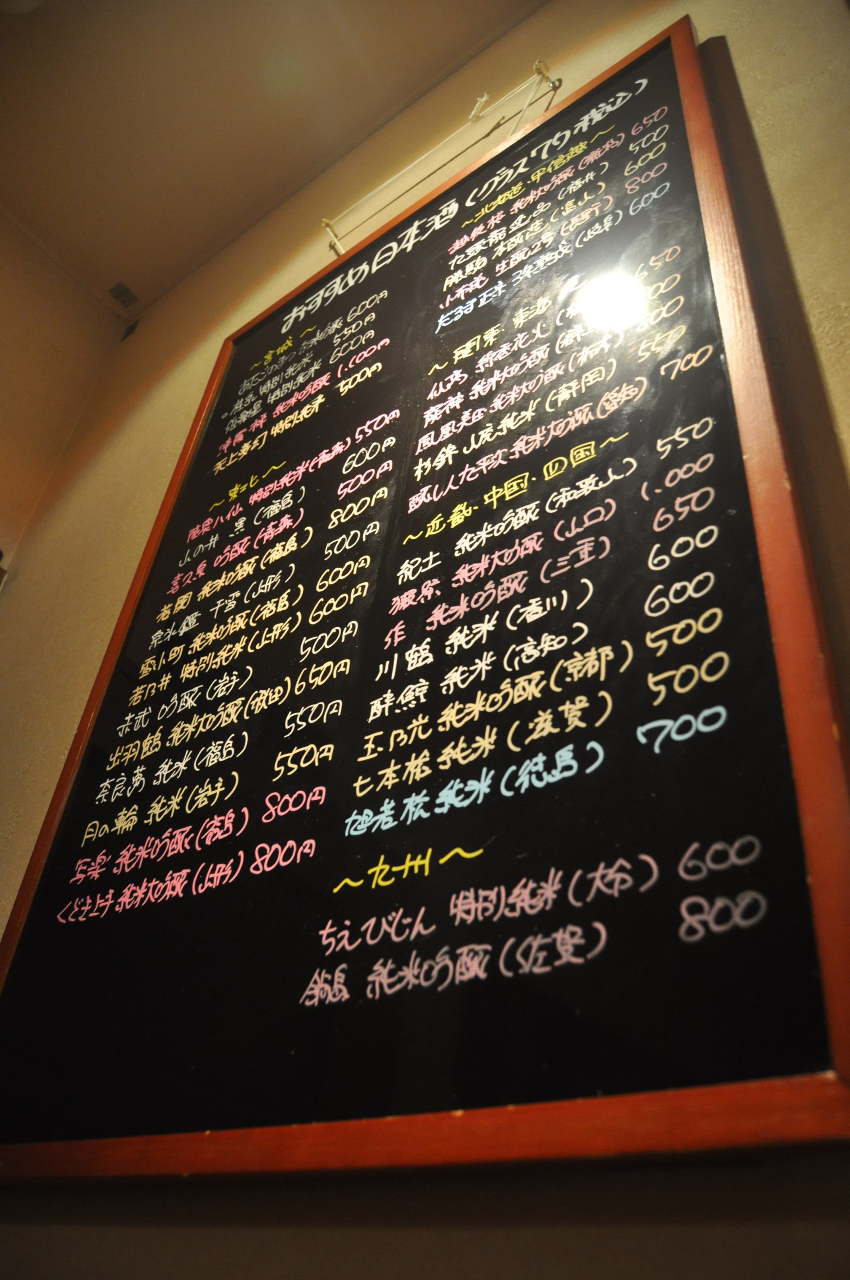 おすすめ日本酒(グラス70 税込)
～宮城～
600円
特別純米 550円
特別純米 600円
純米吟醸 1.000円
天上夢幻 特別純米 500円
～東北～
陸奥八仙 特別純米(青森) 550円
山の井 黒(福島) 600円
喜久泉 吟醸(青森) 500円
純米吟醸(福島) 800円
(山形) 500円
雪小町 純米吟醸(福島) 600円
若乃井 特別純米(山形) 600円
吟醸(岩手) 500円
出羽鶴 純米大吟醸(秋田) 650円
奈良萬 純米(福島) 550円
月の輪 純米(岩手) 550円
写楽 純米吟醸(福島) 800円
くどき上手 純米大吟醸(山形) 800円
～北海道・甲信越～
純米吟醸 650
九頭龍 逸品(福井) 500
勝駒 本醸造(富山) 600
小布施 (長野) 800
だるま正宗 (岐阜) 600
～関東・東海～
仙禽 650
龍神 純米吟醸
鳳凰美田 純米大吟醸(栃木)
杉錦 山廃純米(静岡) 550
醸し人九平次 純米大吟醸(愛知) 700
～近畿・中国・四国～
紀土 純米吟醸(和歌山) 550
獺祭 純米大吟醸(山口) 1.000
作 純米吟醸(三重) 650
川鶴 純米(香川) 600
酔鯨 純米(高知) 600
玉乃光 純米吟醸(京都) 500
七本槍 純米(滋賀) 500
旭若松 純米(徳島) 700
～九州～
ちえびじん 特別純米(大分) 600
鍋島 純米吟醸(佐賀) 800